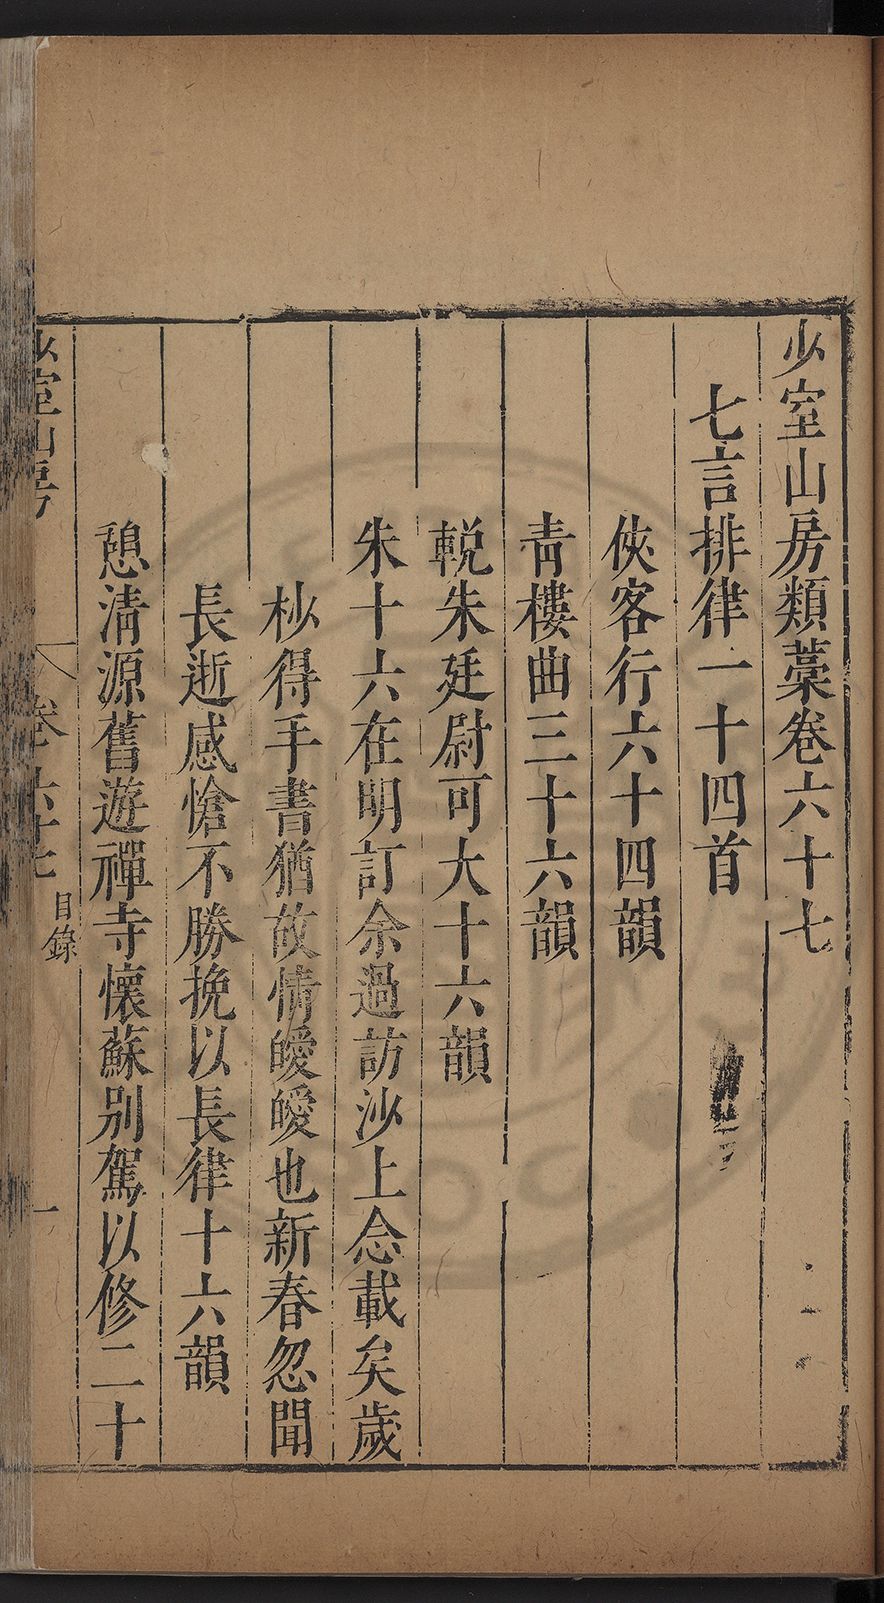 少室山房類藁卷六十七
七言排律一十四首
俠客行六十四韻
青樓曲三十六韻
輓朱廷尉可大十六韻
朱十六在明訂余過訪沙上念載矣歲
杪得手書猶故情皧皧也新春忽聞
長逝感愴不勝挽以長律十六韻
憩清源舊遊禪寺懷蘇别駕以修二十
少室山房
卷六十七
目錄
一